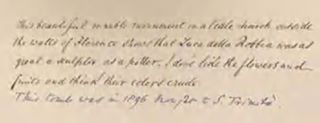 This beautiful marble monument in a little church outside
the walls of Florence shows that Luca della Robbia was as
great a sculptor as a potter. I don't like the flowers and
fruits and think their colors crude.
This tomb was in 1896 to S. Trinità.